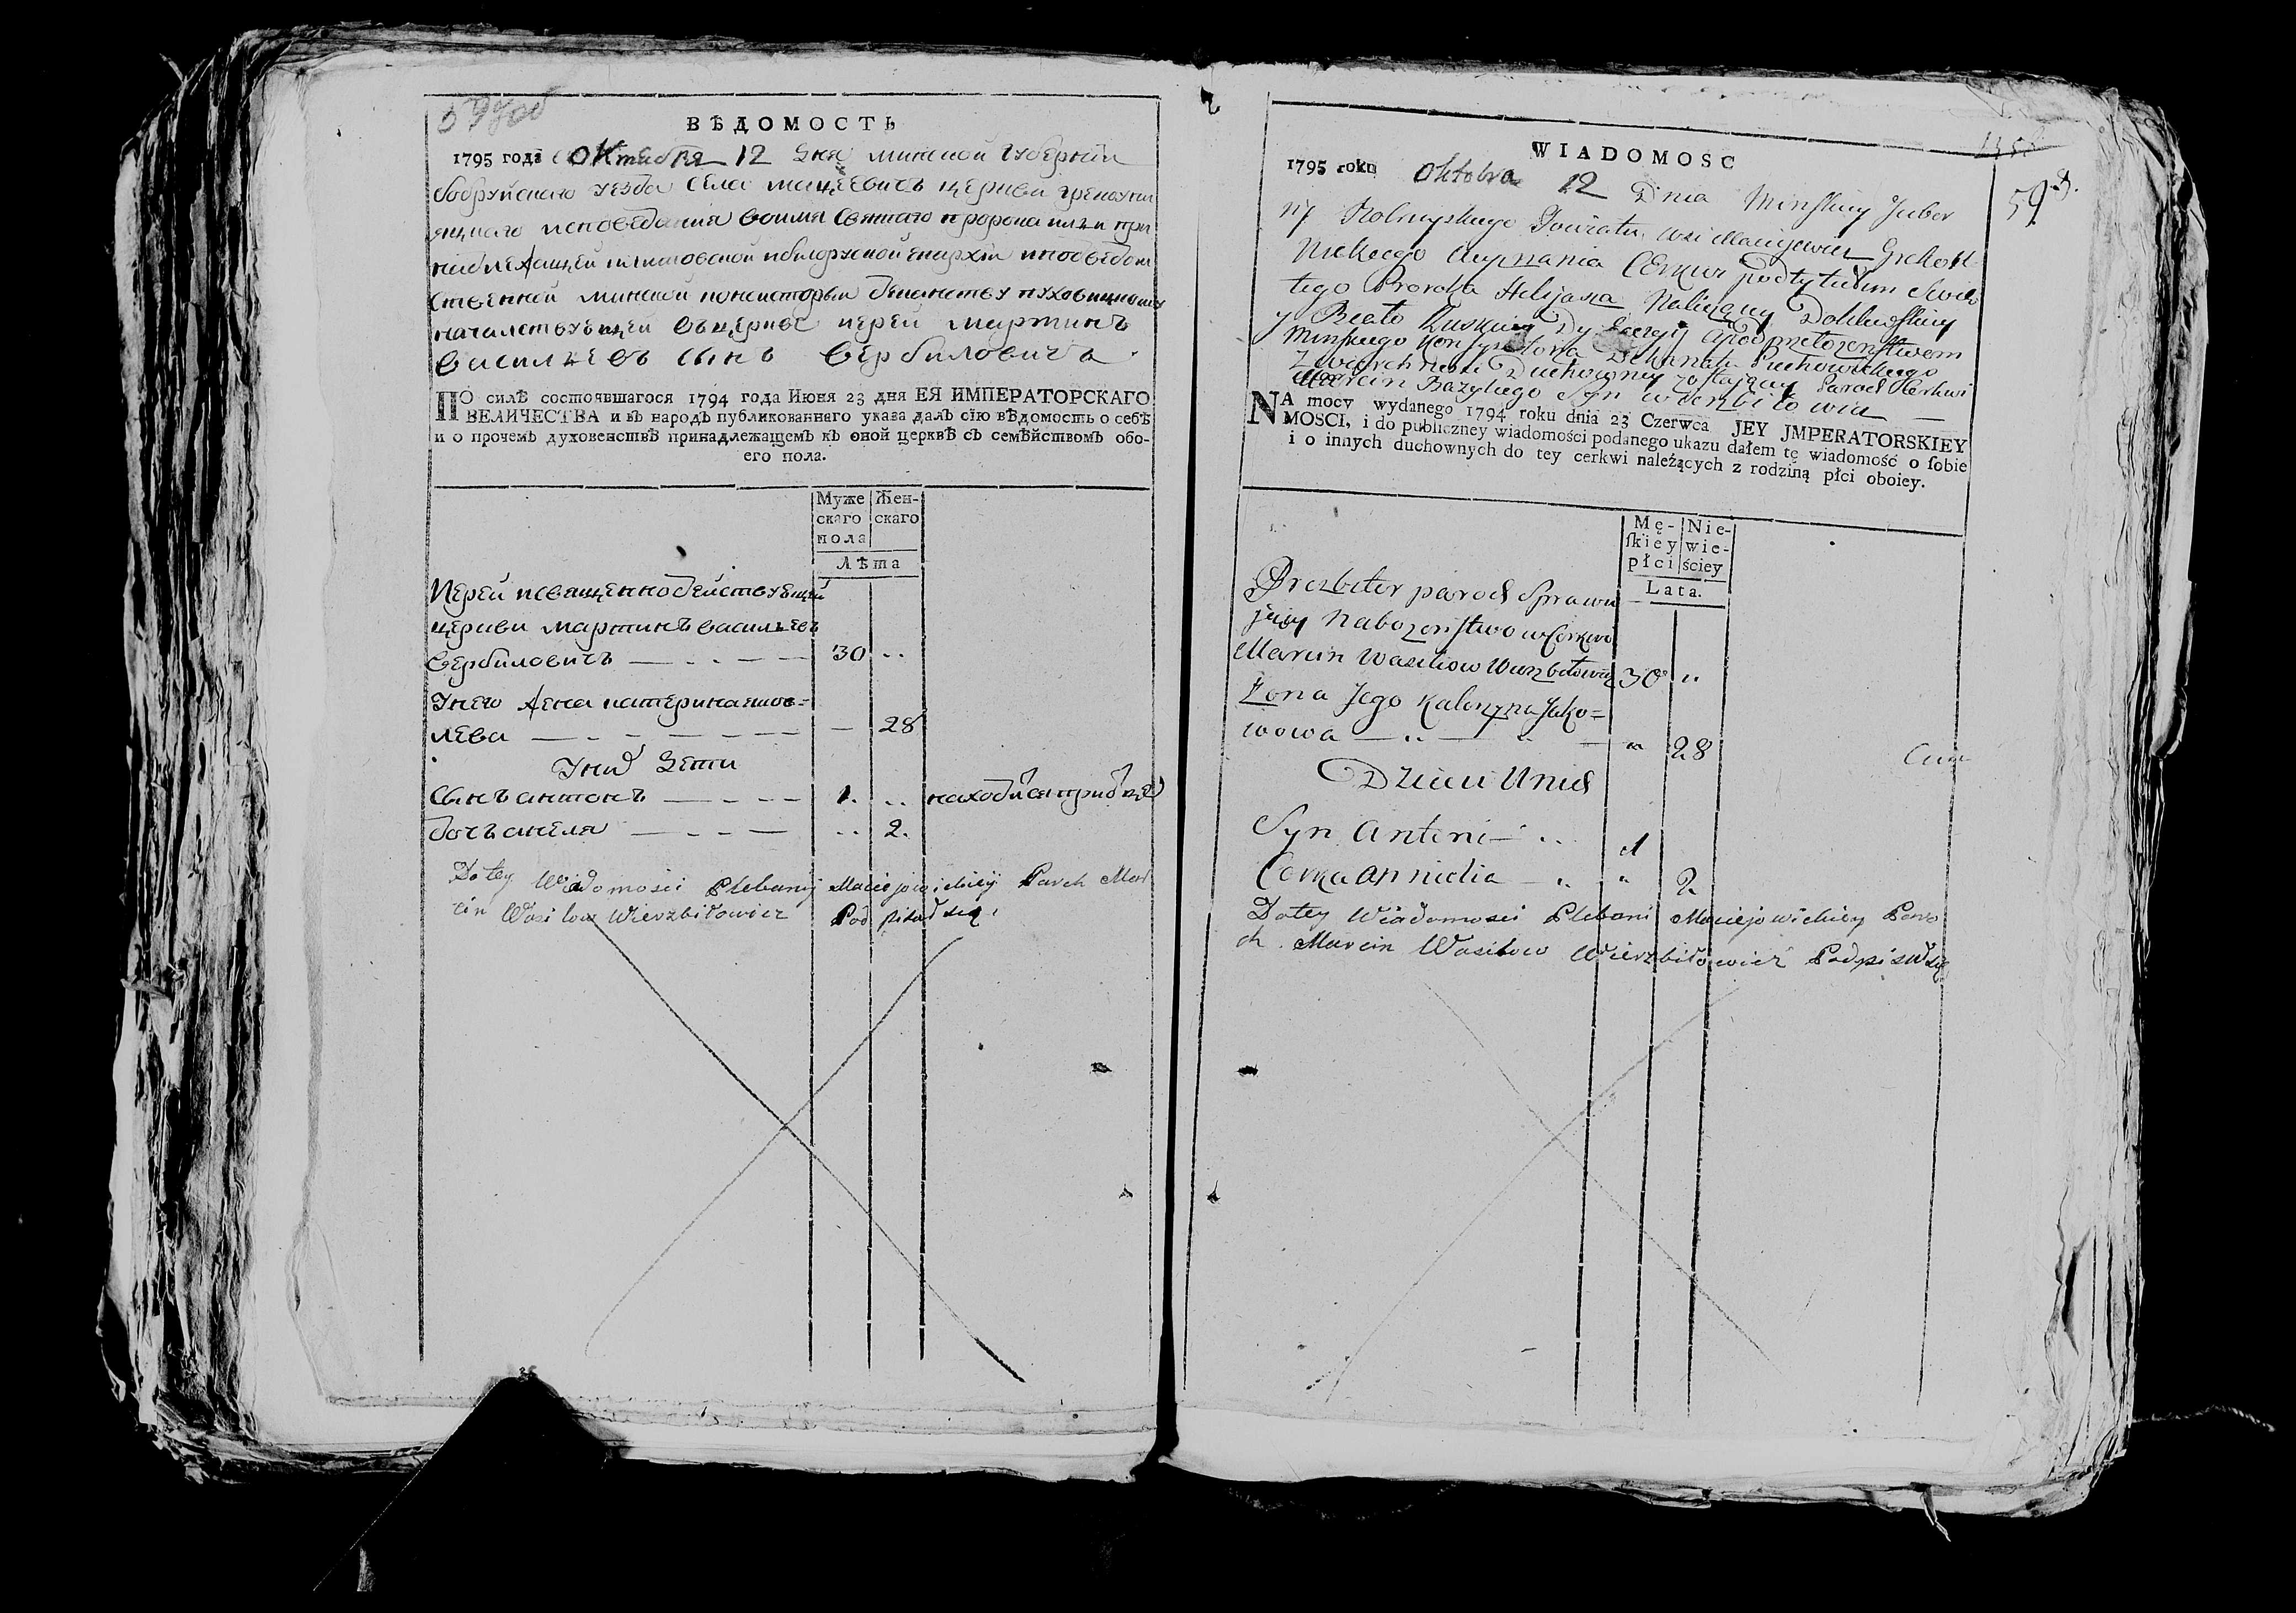 ВѢДОМОСТЬ
1795 года октября 12 дня минской губернїи
бобруйского уезда села мацеевичъ церкви грекоуни
яцкаго исповедания воимя святаго пророка илии при
надлежащей
ственной минской консисторыи деканству пуховицкому
началствующей въцеркве иерей мартинъ
васильевъ сынъ вербиловича
ПО силѣ состоявшагося 1794 года Июня 23 дня ЕЯ ИМПЕРАТОРСКАГО
ВЕЛИЧЕСТВА и въ народъ публикованнаго указа далъ сїю вѣдомость о себѣ
и о прочемъ духовенствѣ принадлежащемъ къ оной церквѣ съ семѣйствомъ обо-
его пола.
Муже скаго пола Жен- скаго
Лѣта
Иерей исвященнодействующий
церкви мартинъ васильевъ
вербиловичъ 30 ..
Унего жена катерина яков=
лева — 28
Уних дети
Сынъ антонъ 1. ..
дочъ анеля .. 2.
Do tey Wiadomosci Plebanij Maciejowickiey Parch Mar
cin Wasilow Wierzbiłowicz Pod pisał się
WIADOMOSC
1795 roku Oktobra 12 Dnia Minskiey Guber
nij Powiatu wsi Maciejewicz Grekou
nickiego Wyznania Cerkwi pod tytułem Swię
tego Proroka Helijasza Należący
y Beało Ruskiey Dyecezyi
Minskiego Konsystorza Dekanata Puchowickiego
Zwierzchnosci Duchowney zostaiący Paroch Cerkwi
Marcin Bazylego Syn Wierzbiłowicz
NA mocy wydanego 1794 roku dnia 23 Czerwca JEY JMPERATORSKIEY
MOSCI, i do publiczney wiadomości podanego ukazu dałem tę wiadomość o ſobie
i o innych duchownych do tey cerkwi należących z rodziną płci oboiey.
Mę- ſkiey płci Nie- wie- ściey
Lata.
Prezbiter paroch Sprawu
jący Nabozeństwo w Cerkwi
Marcin Wasilow Wierzbiłowicz 30 ..
Zona Jego Katerzyna Jako=
wowa 28
Dzieci Unich
Syn Antoni 1
Corka Anielia 2
Do tey Wiadomosci Plebani Maciejowickiey Paro
ch. Marcin Wasilow Wierzbiłowicz Podpisał się